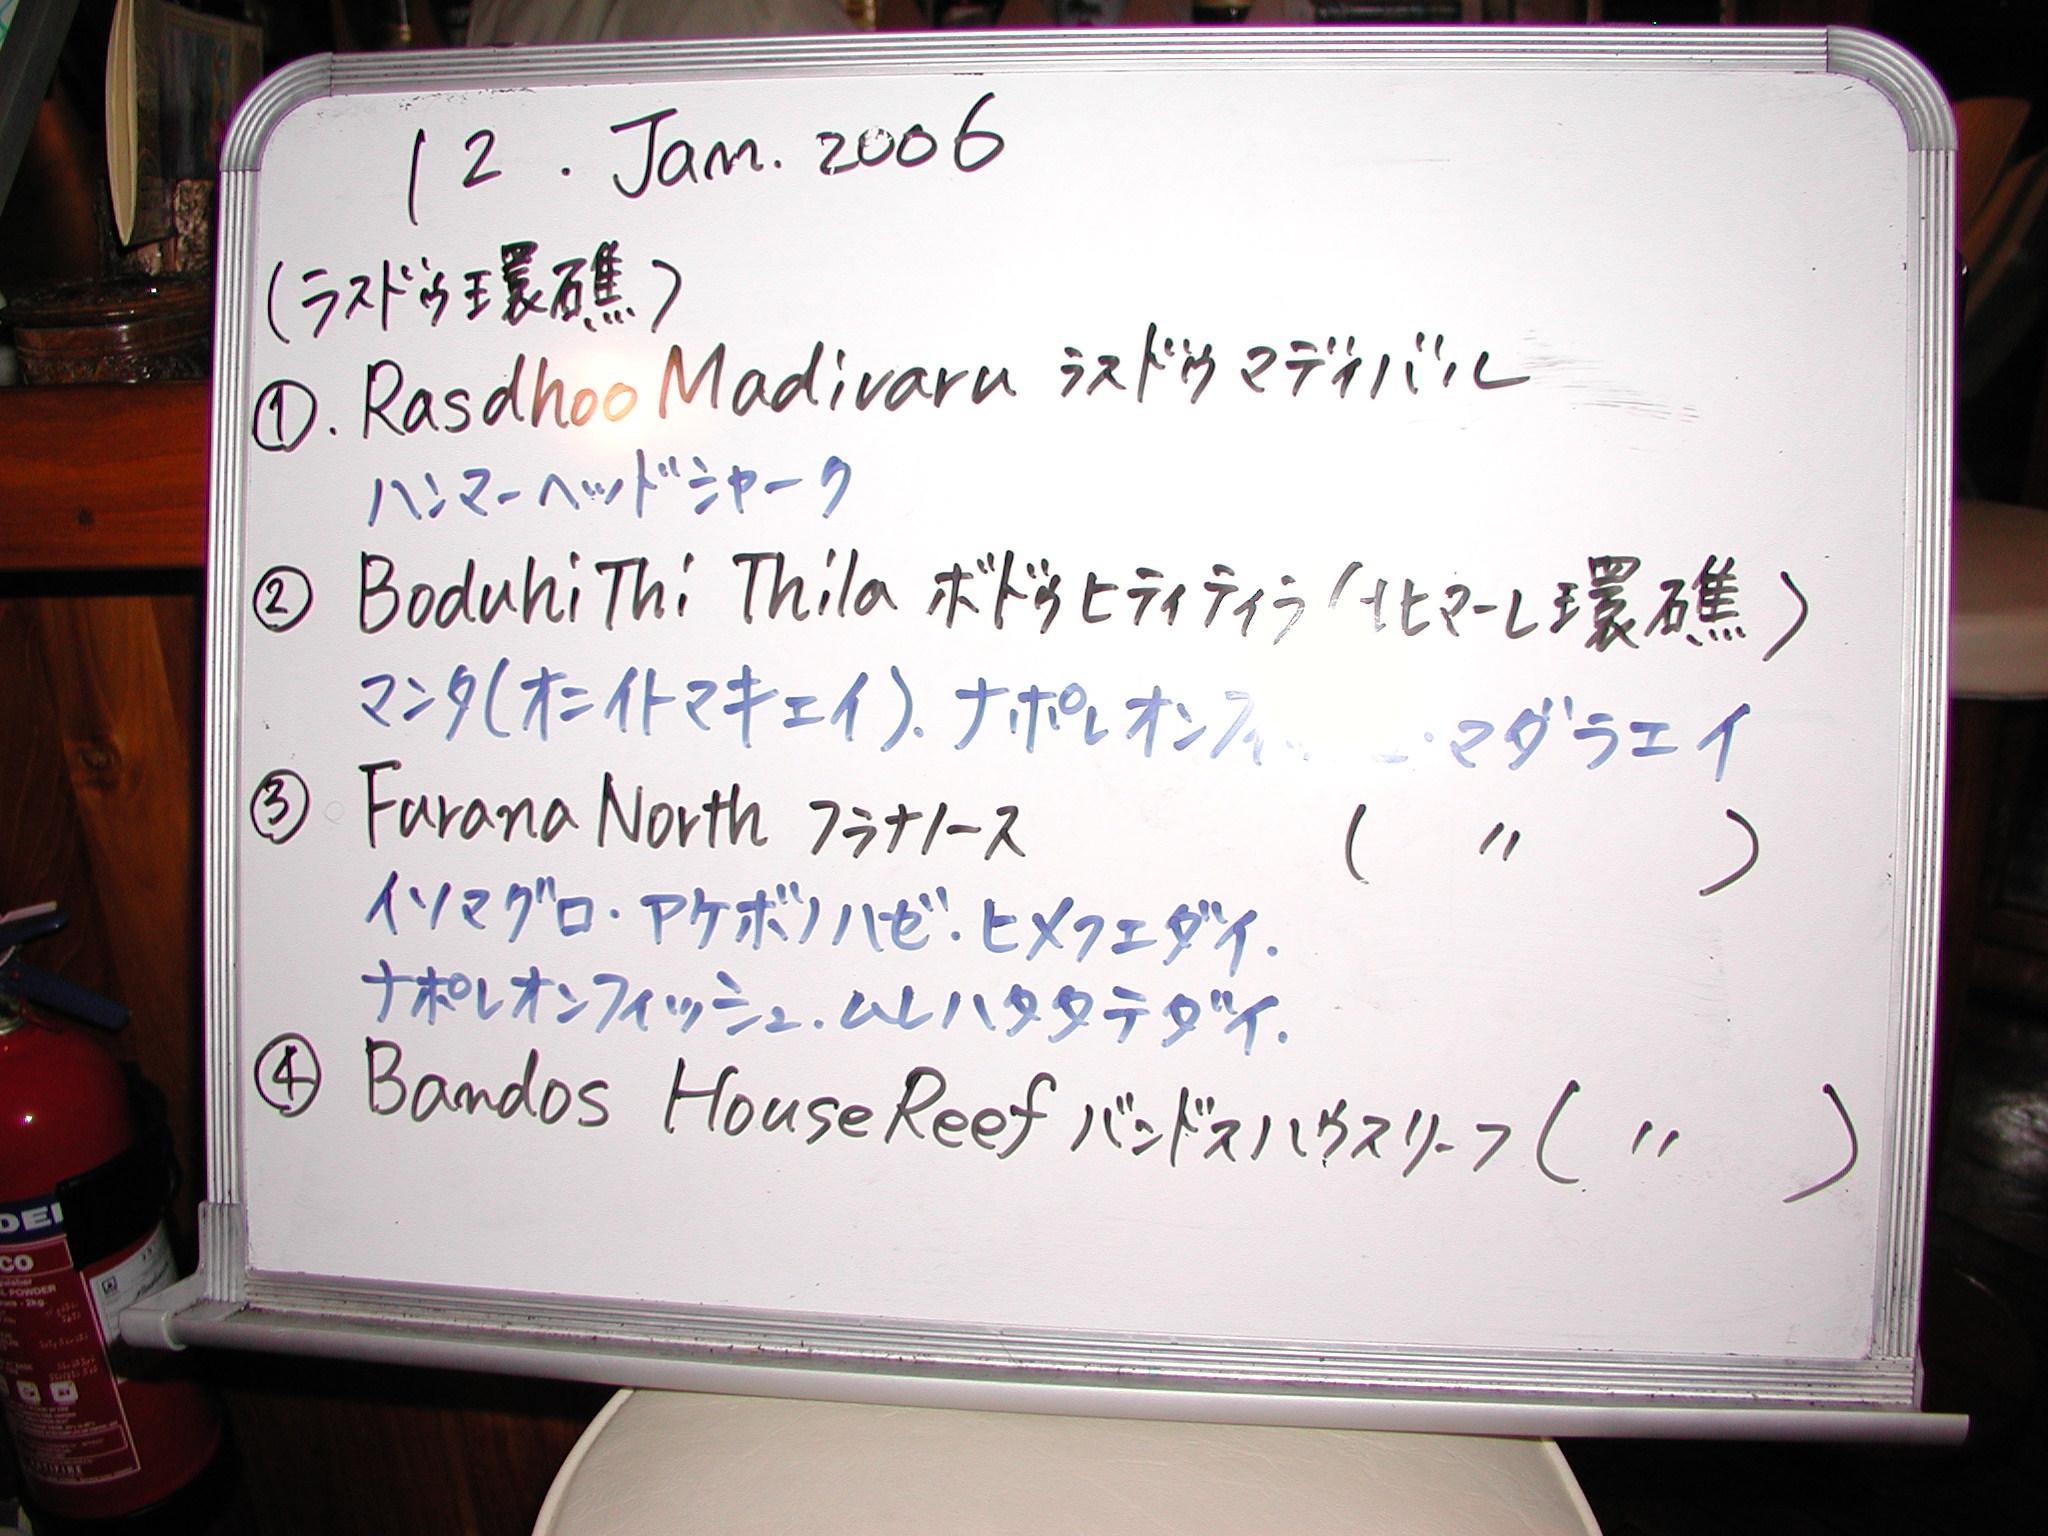 12. Jan. 2006
(ラスドゥ環礁)
①. Rasdhoo Madivaru ラスドゥマディバル
ハンマーヘッドシャーク
② BoduhiThi Thila ボドゥヒティティラ (北マーレ環礁)
マンタ(オニイトマキエイ)、ナポレオンフィ ・マダラエイ
③ Furana North フラナノース ( 〃 )
イソマグロ・アケボノハゼ・ヒメフエダイ・
ナポレオンフィッシュ・ムレハタタテダイ・
④ Bandos House Reef バンドスハウスリーフ ( 〃 )
CO
POWDER
2kg